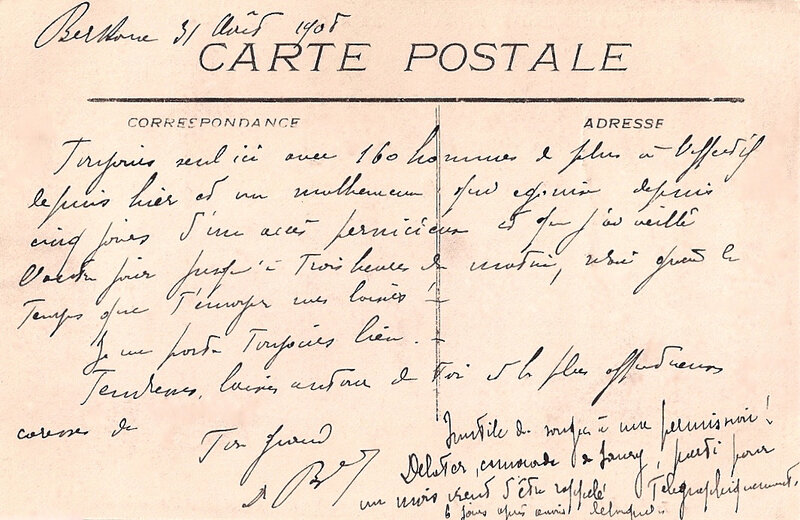 Berkane 31 Août 1908
CARTE POSTALE
CORRESPONDANCE
ADRESSE
Toujours seul ici avec 160 hommes de plus à l'effectif
depuis hier et un malheureux qui agonise depuis
cinq jours d'un accès pernicieux et que j'ai veillé
jour jusqu'à Trois heures du matin, voici quand le
Temps que t'envoyer mes baisers !
Je me porte Toujours bien. –
Tendresses, baisers autour de Toi et les plus affectueuses
caresses de
Ton grand
Inutile de songer à une permission !
Delater, camarade de parti pour
un mois vient d'être rappelé Télégraphiquement,
6 jours après